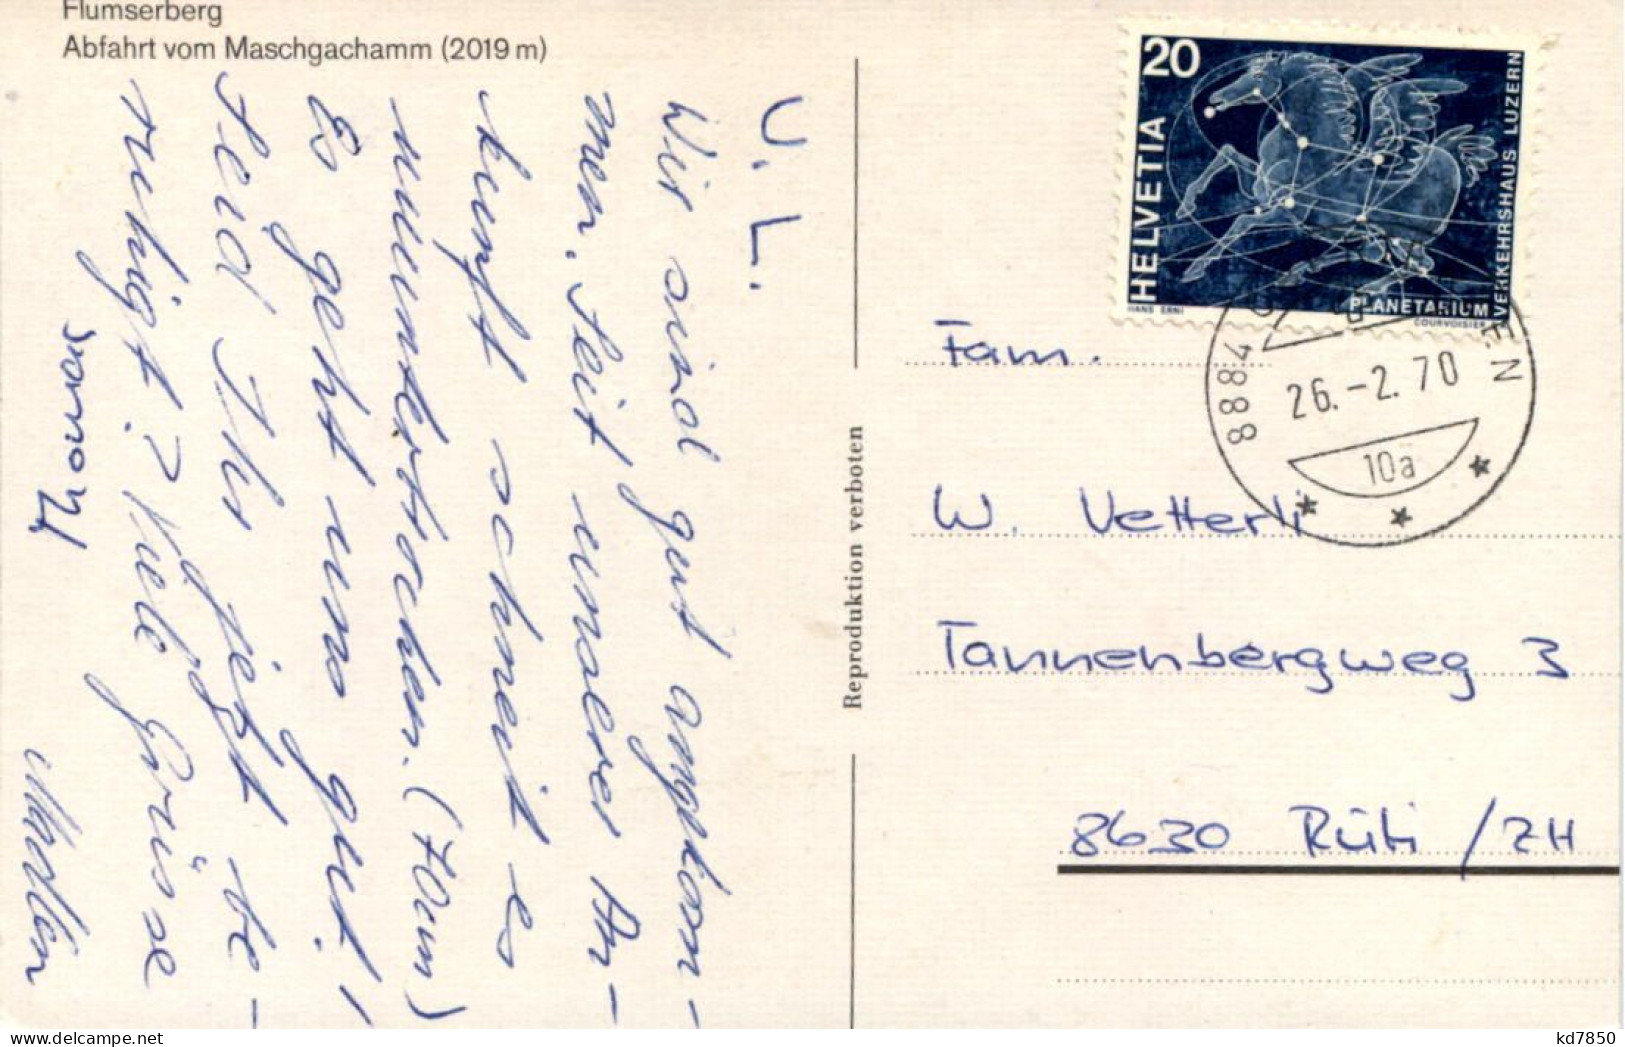 Flumserberg
Abfahrt vom Maschgachamm (2019 m)
U. L.
Wir sind gut angekom-
men. Seit unserer An-
kunft schneit es
ununterbrochen. (70cm)
Es geht uns gut!
Seid Ihr jetzt be-
ruhigt? Viele Grüsse
Madlen
Reproduktion verboten
20
HELVETIA
VERKEHRSHAUS LUZERN
PLANETARIUM
HANS ERNI
COURVOISIER
8884
EN
26.-2.70
10a
Fam.
W. Vetterli
Tannenbergweg 3
8630 Rüti / ZH
kd7850